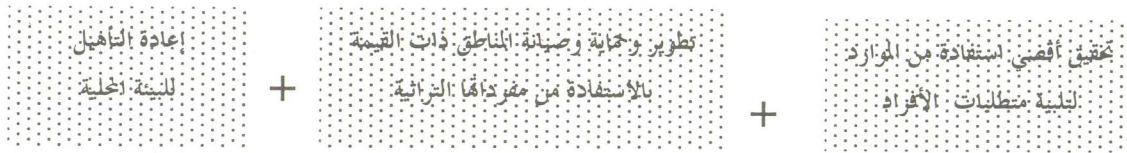 تحقيق أقصي استفادة من الموارد
لتلبية متطلبات الأفراد
+
تطوير وحماية وصيانة المناطق ذات القيمة
بالاستفادة من مفرداتها التراثية
+
إعادة التأهيل
للبيئة المحلية